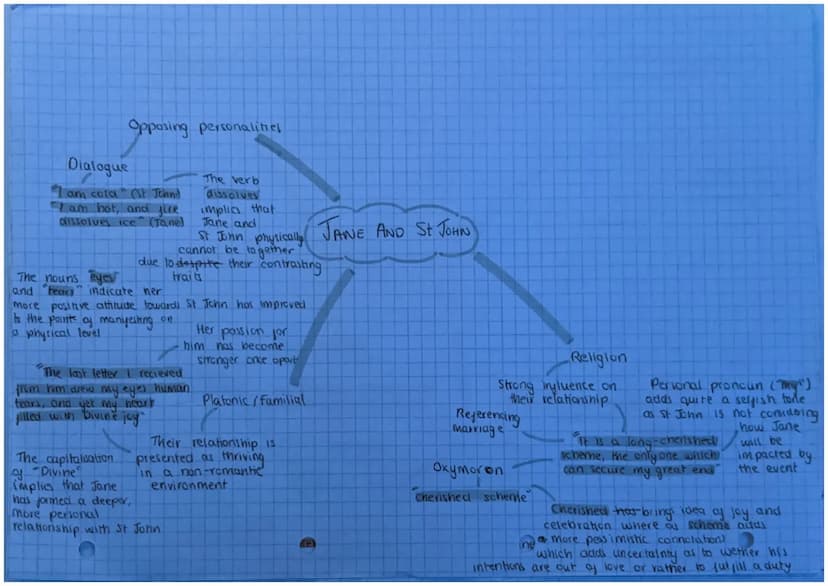 JANE AND St JOHN
Opposing personalities
Dialogue
"I am cold" (St John)
"I am hot, and fire
dissolves ice" (Jane)
The verb
"dissolves"
implies that
Jane and
St John physically
cannot be together
due to despite their contrasting
traits
The nouns "eyes"
and "tears" indicate her
more positive attitude towards St John has improved
to the points of manifesting on
a physical level
Her passion for
him has become
stronger once apart
"The last letter I recieved
from him drew my eyes human
tears, and yet my heart
filled with Divine joy"
Platonic/Familial
Their relationship is
presented as thriving
in a non-romantic
environment
The capitalisation
of "Divine"
implies that Jane
has formed a deeper,
more personal
relationship with St John
Religion
Strong influence on
their relationship
Personal pronoun ("my")
adds quite a selfish tone
as St John is not considing
how Jane
will be
impacted by
the event
Referencing
marriage
"It is a long-cherished
scheme, the only one which
can secure my great end"
Oxymoron
"cherished scheme"
Cherished has brings idea of joy and
celebration where as scheme adds
a more pessimistic connotations
which adds uncertainty as to wether his
intentions are out of love or rather to fulfill a duty